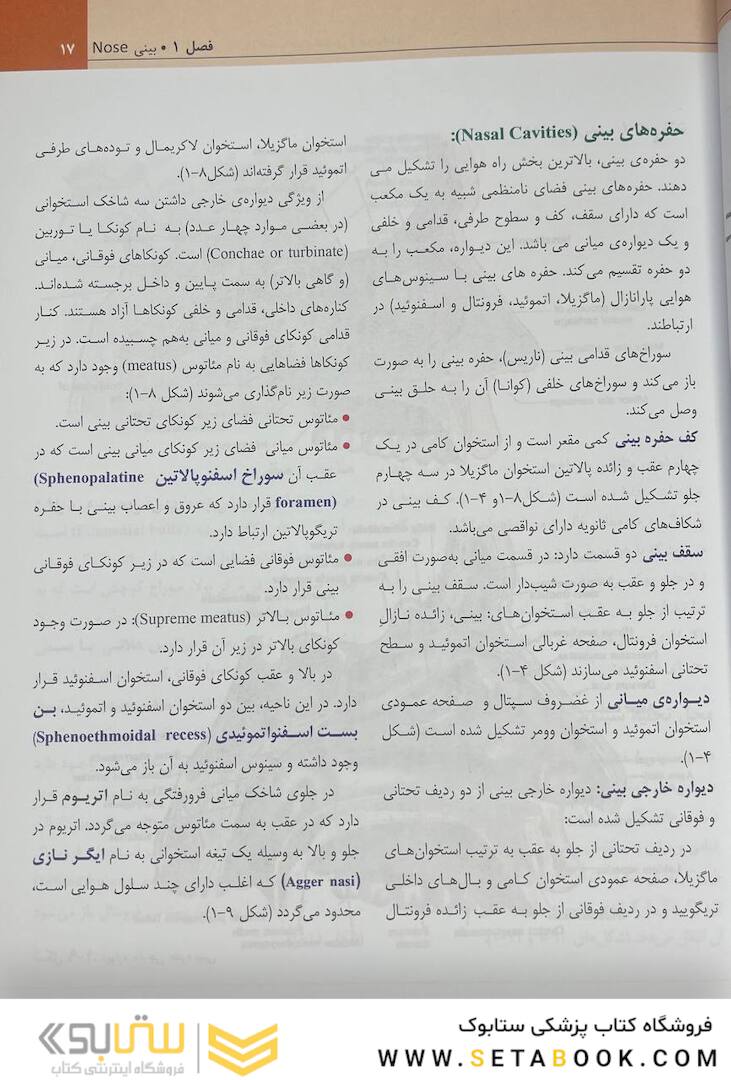 فصل ۱ • بینی Nose
۱۷
حفره‌های بینی (Nasal Cavities):
دو حفره‌ی بینی، بالاترین بخش راه هوایی را تشکیل می
دهند. حفره‌های بینی فضای نامنظمی شبیه به یک مکعب
است که دارای سقف، کف و سطوح طرفی، قدامی و خلفی
و یک دیواره‌ی میانی می باشد. این دیواره، مکعب را به
دو حفره تقسیم می‌کند. حفره های بینی با سینوس‌های
هوایی پارانازال (ماگزیلا، اتموئید، فرونتال و اسفنوئید) در
ارتباطند.
سوراخ‌های قدامی بینی (ناریس)، حفره بینی را به صورت
باز می‌کند و سوراخ‌های خلفی (کوانا) آن را به حلق بینی
وصل می‌کند.
کف حفره بینی کمی مقعر است و از استخوان کامی در یک
چهارم عقب و زائده پالاتین استخوان ماگزیلا در سه چهارم
جلو تشکیل شده است (شکل۸-۱و ۴-۱). کف بینی در
شکاف‌های کامی ثانویه دارای نواقصی می‌باشد.
سقف بینی دو قسمت دارد: در قسمت میانی به‌صورت افقی
و در جلو و عقب به صورت شیب‌دار است. سقف بینی را به
ترتیب از جلو به عقب استخوان‌های: بینی، زائده نازال
استخوان فرونتال، صفحه غربالی استخوان اتموئید و سطح
تحتانی اسفنوئید می‌سازند (شکل ۴-۱).
دیواره‌ی میانی از غضروف سپتال و صفحه عمودی
استخوان اتموئید و استخوان وومر تشکیل شده است (شکل
۴-۱).
دیواره خارجی بینی: دیواره خارجی بینی از دو ردیف تحتانی
و فوقانی تشکیل شده است:
در ردیف تحتانی از جلو به عقب به ترتیب استخوان‌های
ماگزیلا، صفحه عمودی استخوان کامی و بال‌های داخلی
تریگویید و در ردیف فوقانی از جلو به عقب زائده فرونتال
استخوان ماگزیلا، استخوان لاکریمال و توده‌های طرفی
اتموئید قرار گرفته‌اند (شکل۸-۱).
از ویژگی دیواره‌ی خارجی داشتن سه شاخک استخوانی
(در بعضی موارد چهار عدد) به نام کونکا یا توربین
(Conchae or turbinate) است. کونکاهای فوقانی، میانی
(و گاهی بالاتر) به سمت پایین و داخل برجسته شده‌اند.
کناره‌های داخلی، قدامی و خلفی کونکاها آزاد هستند. کنار
قدامی کونکای فوقانی و میانی به‌هم چسبیده است. در زیر
کونکاها فضاهایی به نام مئاتوس (meatus) وجود دارد که به
صورت زیر نام‌گذاری می‌شوند (شکل ۸-۱):
• مئاتوس تحتانی فضای زیر کونکای تحتانی بینی است.
• مئاتوس میانی فضای زیر کونکای میانی بینی است که در
عقب آن سوراخ اسفنوپالاتین (Sphenopalatine
foramen) قرار دارد که عروق و اعصاب بینی با حفره
تریگوپالاتین ارتباط دارد.
• مئاتوس فوقانی فضایی است که در زیر کونکای فوقانی
بینی قرار دارد.
• مئاتوس بالاتر (Supreme meatus): در صورت وجود
کونکای بالاتر در زیر آن قرار دارد.
در بالا و عقب کونکای فوقانی، استخوان اسفنوئید قرار
دارد. در این ناحیه، بین دو استخوان اسفنوئید و اتموئید، بن
بست اسفنواتموئیدی (Sphenoethmoidal recess)
وجود داشته و سینوس اسفنوئید به آن باز می‌شود.
در جلوی شاخک میانی فرورفتگی به نام اتریوم قرار
دارد که در عقب به سمت مئاتوس متوجه می‌گردد. اتریوم در
جلو و بالا به وسیله یک تیغه استخوانی به نام ایگر نازی
(Agger nasi) که اغلب دارای چند سلول هوایی است،
محدود می‌گردد (شکل ۹-۱).
فروشگاه کتاب پزشکی ستابوک
WWW.SETABOOK.COM
ستابوک
فروشگاه اینترنتی کتاب